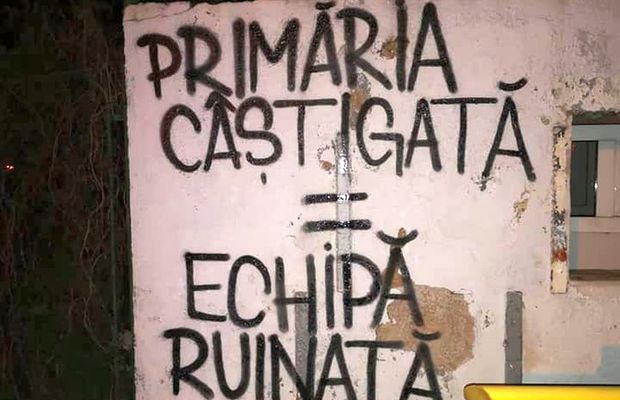 PRIMĂRIA
CÂȘTIGATĂ
=
ECHIPĂ
RUINATĂ